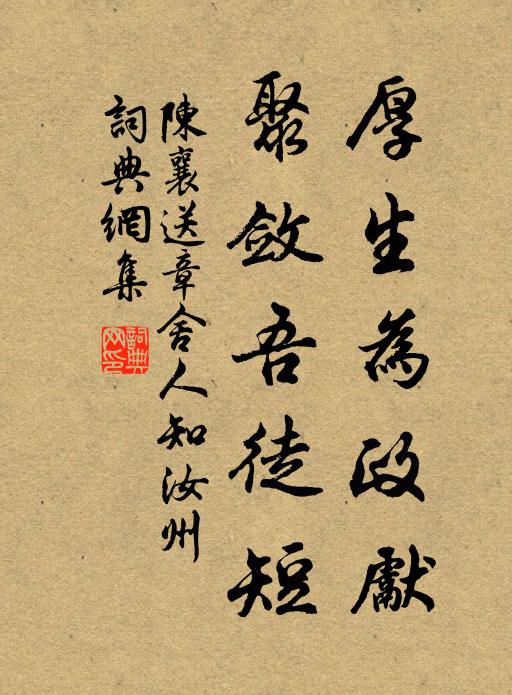 厚生為政獻
聚斂吾徒短
陳襄送章舍人知汝州
詞典網集
詞典
网印